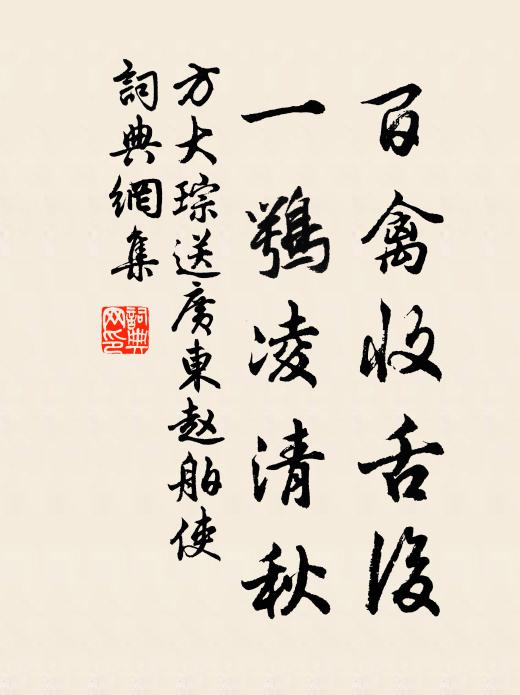 百禽收舌後
一鶚凌清秋
方大琮送廣東趙舶使
詞典網集
詞典网印